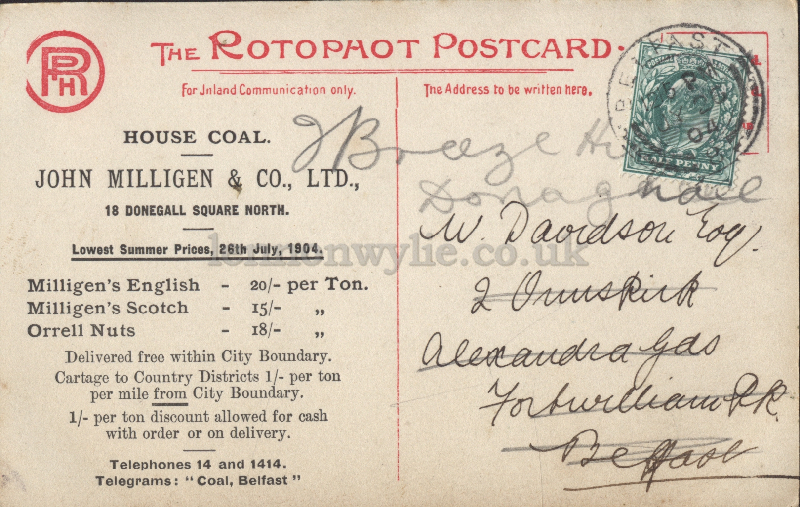 THE ROTOPHOT POSTCARD.
RPH
For Inland Communication only.
The Address to be written here.
HOUSE COAL.
JOHN MILLIGEN & CO., LTD.,
18 DONEGALL SQUARE NORTH.
Lowest Summer Prices, 26th July, 1904.
Milligen's English - 20/- per Ton.
Milligen's Scotch - 15/- „
Orrell Nuts - 18/- „
Delivered free within City Boundary.
Cartage to Country Districts 1/- per ton
per mile from City Boundary.
1/- per ton discount allowed for cash
with order or on delivery.
Telephones 14 and 1414.
Telegrams: "Coal, Belfast"
BELFAST
04
POSTAGE
HALF PENNY
Breeze
Donaghadee
W. Davidson Esq.
2 Ormskirk
Alexandra Gds
Fortwilliam Pk.
Belfast
lennonwylie.co.uk